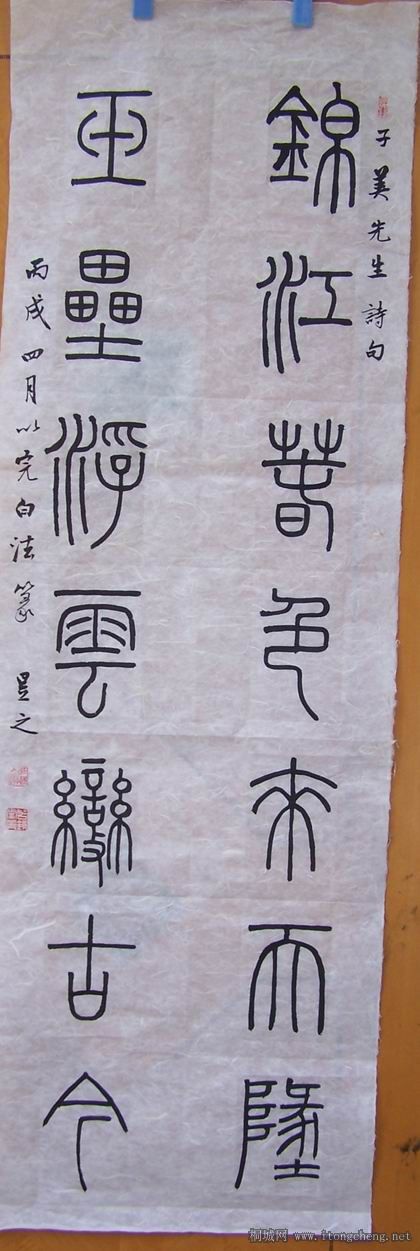 子美先生詩句
錦江春色來天墬
玉壘浮雲變古今
丙戌四月以完白法篆 之
桐城网 www.itongcheng.net